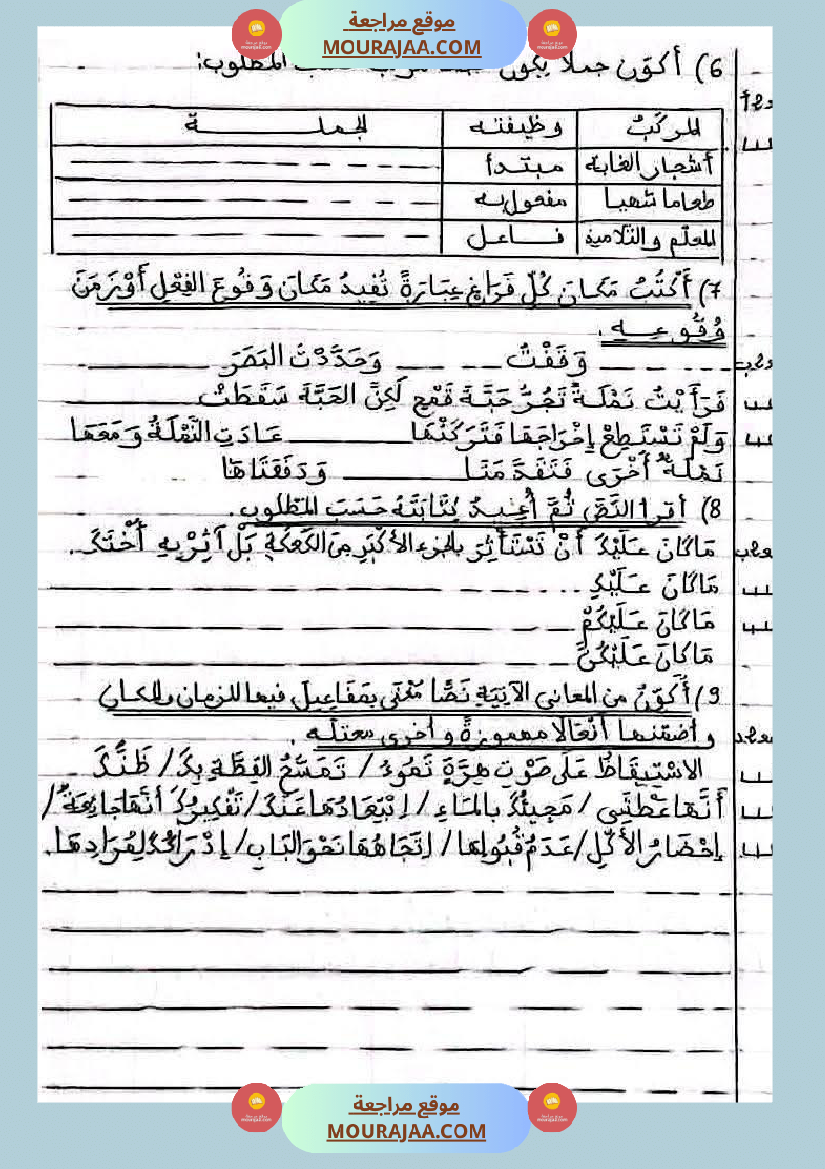 موقع مراجعة
MOURAJAA.COM
6) أكوّن جملا يكون
المركّبُ وظيفته الجملة
أشجار الغابة مبتدأ
طعاما شهيا مفعول به
المعلّم والتّلاميذ فاعل
7) أَكْتُبُ مَكَانَ كُلِّ فَرَاغٍ عِبَارَةً تُفِيدُ مَكَانَ وَقُوعَ الفِعْلِ أَوْ زَمَنَ
وُقُوعِهِ.
وَقَفْتُ وَحَدَّدْتُ البَصَرَ
فَرَأَيْتُ نَمْلَةً تَجُرُّ حَبَّةَ قَمْحٍ لَكِنَّ الحَبَّةَ سَقَطَتْ
وَلَمْ تَسْتَطِعْ إِخْرَاجَهَا فَتَرَكَتْهَا عَادَتِ النَّمْلَةُ وَمَعَهَا
نَمْلَةٌ أُخْرَى فَتَقَدَّمَتَا وَدَفَعَتَاهَا
8) أقرأ النّصَّ ثُمَّ أُعِيدُ كِتَابَتَهُ حَسَبَ المَطْلُوبِ.
مَا كَانَ عَلَيْكَ أَنْ تَسْتَأْثِرَ بالجزء الأَكْبَرِ مِنَ الكَعْكَةِ بَلْ آثِرْ بِهِ أُخْتَكَ.
مَا كَانَ عَلَيْكِ
مَا كَانَ عَلَيْكُمْ
مَا كَانَ عَلَيْكُنَّ
9) أُكَوِّنُ من المعاني الآتِيَةِ نَصًّا مُغْتَنٍ بِمَفَاعِيلَ فيها للزمان والمكان
وأضمّنها أفْعَالا مهموزةً وأخرى معتلّة.
الاسْتِيقَاظُ عَلَى صَوْتِ هِرَّةٍ تَمُوءُ / تَمَسُّحُ القِطَّةِ بِكَ / ظَنُّكَ
أَنَّهَا عَطْشَى / مَجِيئُكَ بالمَاءِ / اِبْتِعَادُهَا عَنْكَ / تَفْكِيرُكَ أَنَّهَا جَائِعَةٌ /
إِحْضَارُ الأَكْلِ / عَدَمُ قُبُولِهَا / اِتِّجَاهُهَا نَحْوَ البَابِ / إِدْرَاكُكَ لِمُرَادِهَا.
موقع مراجعة
MOURAJAA.COM